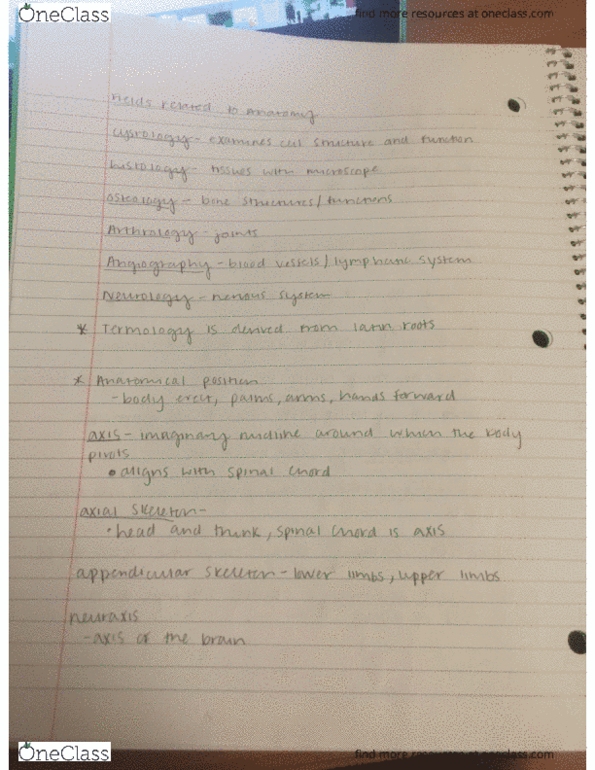 OneClass
find more resources at oneclass.com
Fields related to Anatomy
Cystology - examines cell structure and function
histology - tissues with microscope
Osteology - bone structures/functions
Arthrology - joints
Angiography - blood vessels/lymphatic system
Neurology - nervous system
* Termology is derived from latin roots
* Anatomical position
- body erect, palms, arms, hands forward
axis - imaginary midline around which the body
pivots
• aligns with spinal chord
axial skeleton -
• head and trunk, spinal chord is axis
appendicular skeleton - lower limbs, upper limbs
neuraxis
- axis of the brain
OneClass
find more resources at oneclass.com